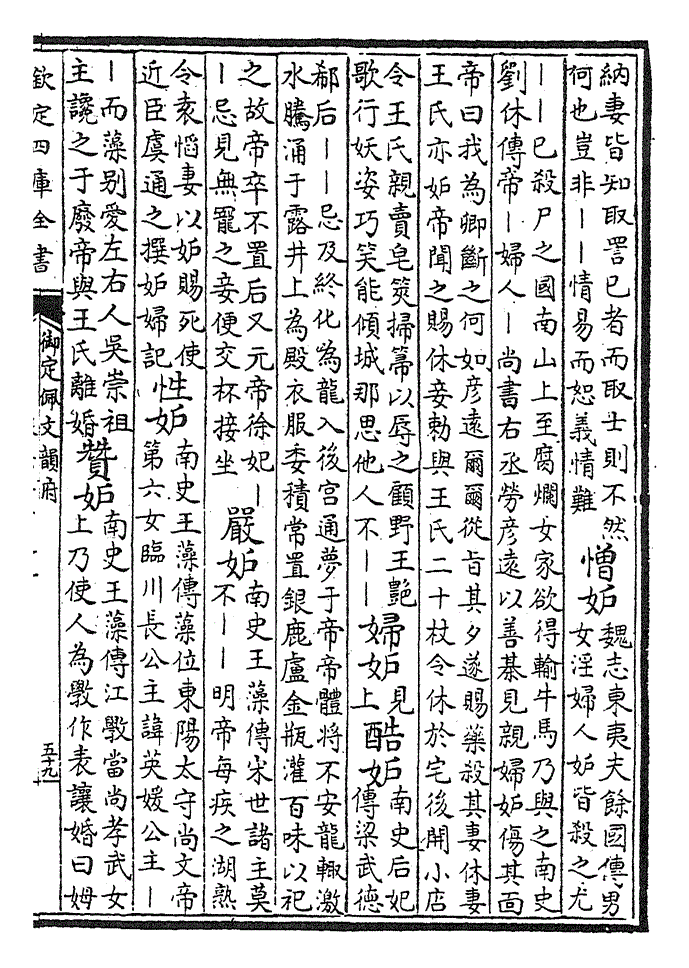 納妻皆知取詈已者而取士則不然
何也豈非——情易而恕義情難
憎妒
魏志東夷夫餘國傳男
女淫婦人妒皆殺之尤
——已殺尸之國南山上至腐爛女家欲得輸牛馬乃與之南史
劉休傳帝—婦人—尚書右丞勞彥遠以善棊見親婦妒傷其面
帝曰我為卿斷之何如彥遠爾爾從旨其夕遂賜藥殺其妻休妻
王氏亦妒帝聞之賜休妾勅與王氏二十杖令休於宅後開小店
令王氏親賣皂筴掃帚以辱之顧野王艷
歌行妖姿巧笑能傾城那思他人不——
婦妒
見
上
酷妒
南史后妃
傳梁武德
郗后——忌及終化為龍入後宮通夢于帝帝體將不安龍輙激
水騰涌于露井上為殿衣服委積常置銀鹿盧金瓶灌百味以祀
之故帝卒不置后又元帝徐妃—
—忌見無寵之妾便交杯接坐
嚴妒
南史王藻傳宋世諸主莫
不——明帝每疾之湖熟
令袁慆妻以妒賜死使
近臣虞通之撰妒婦記
性妒
南史王藻傳藻位東陽太守尚文帝
第六女臨川長公主諱英媛公主—
—而藻别愛左右人吳崇祖
主讒之于廢帝與王氏離婚
贊妒
南史王藻傳江斆當尚孝武女
上乃使人為斆作表讓婚曰姆
欽定四庫全書
御定佩文韻府
五十九